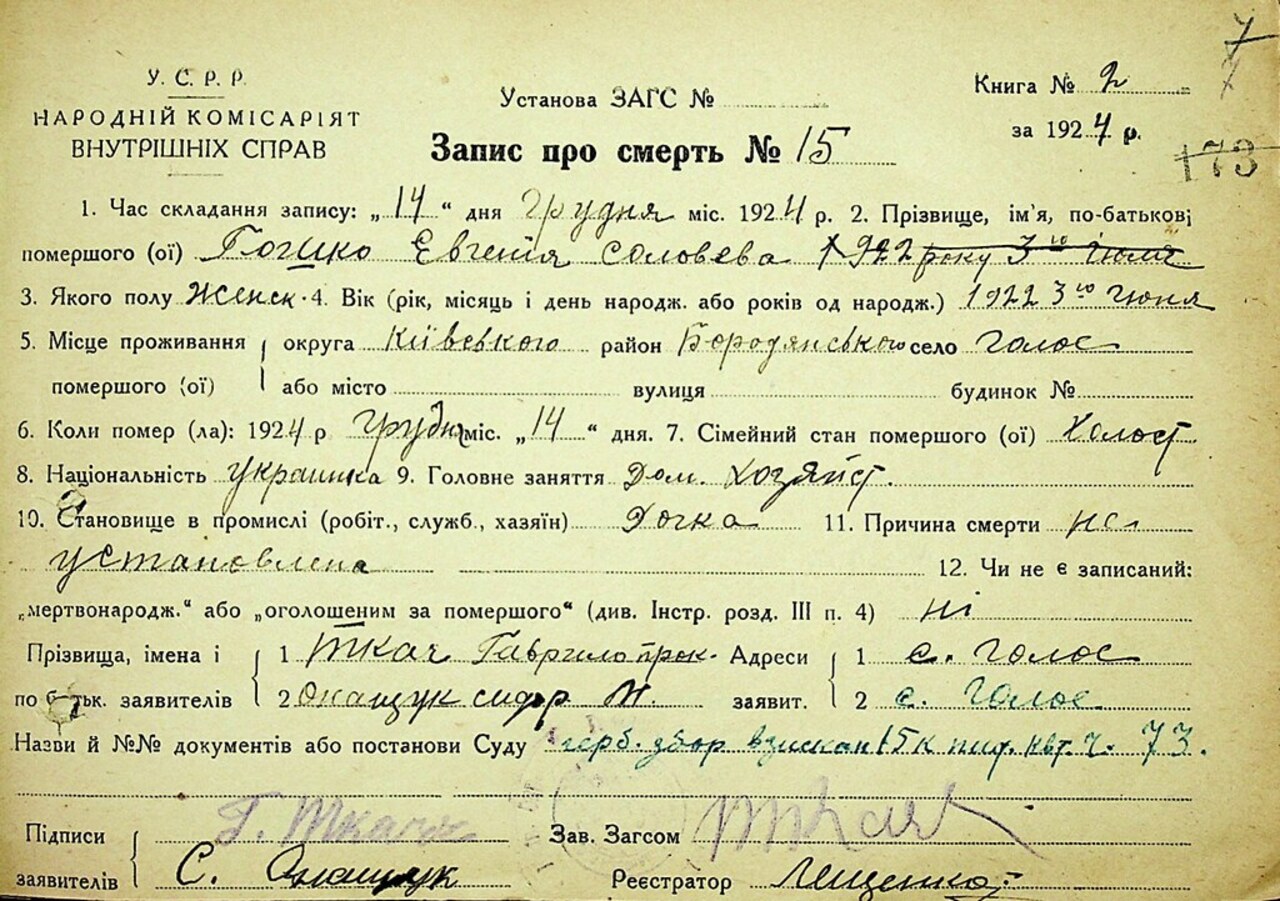 7
У. С. Р. Р.
НАРОДНІЙ КОМІСАРІЯТ
ВНУТРІШНІХ СПРАВ
Установа ЗАГС №
Книга № 2
за 1924 р.
Запис про смерть № 15
173
1. Час складання запису: „14“ дня Грудня міс. 1924 р. 2. Прізвище, ім'я, по-батькові
помершого (ої) Гошко Евгенія Соловева 1922 року 3го Июня
3. Якого полу Женск. 4. Вік (рік, місяць і день народж. або років од народж.) 1922 3го Июня
5. Місце проживання округа Київського район Бородянського село Голос
помершого (ої) або місто вулиця будинок №
6. Коли помер (ла): 1924 р Грудня міс. „14“ дня. 7. Сімейний стан помершого (ої) Холост.
8. Національність украинка 9. Головне заняття Дом. Хозяйст.
10. Становище в промислі (робіт., служб., хазяїн) Дочка 11. Причина смерти не
установлена 12. Чи не є записаний:
„мертвонародж.“ або „оголошеним за помершого“ (див. Інстр. розд. III п. 4) ні
Прізвища, імена і 1 Ткач Гаврило Прок. Адреси 1 с. Голос
по батьк. заявителів 2 Онащук Сидор заявит. 2 с. Голос
Назви й №№ документів або постанови Суду герб. збор взискан 15к кв. 73.
Г. Ткач
Підписи Зав. Загсом Ткач
заявителів С. Онащук Реєстратор Лещенко